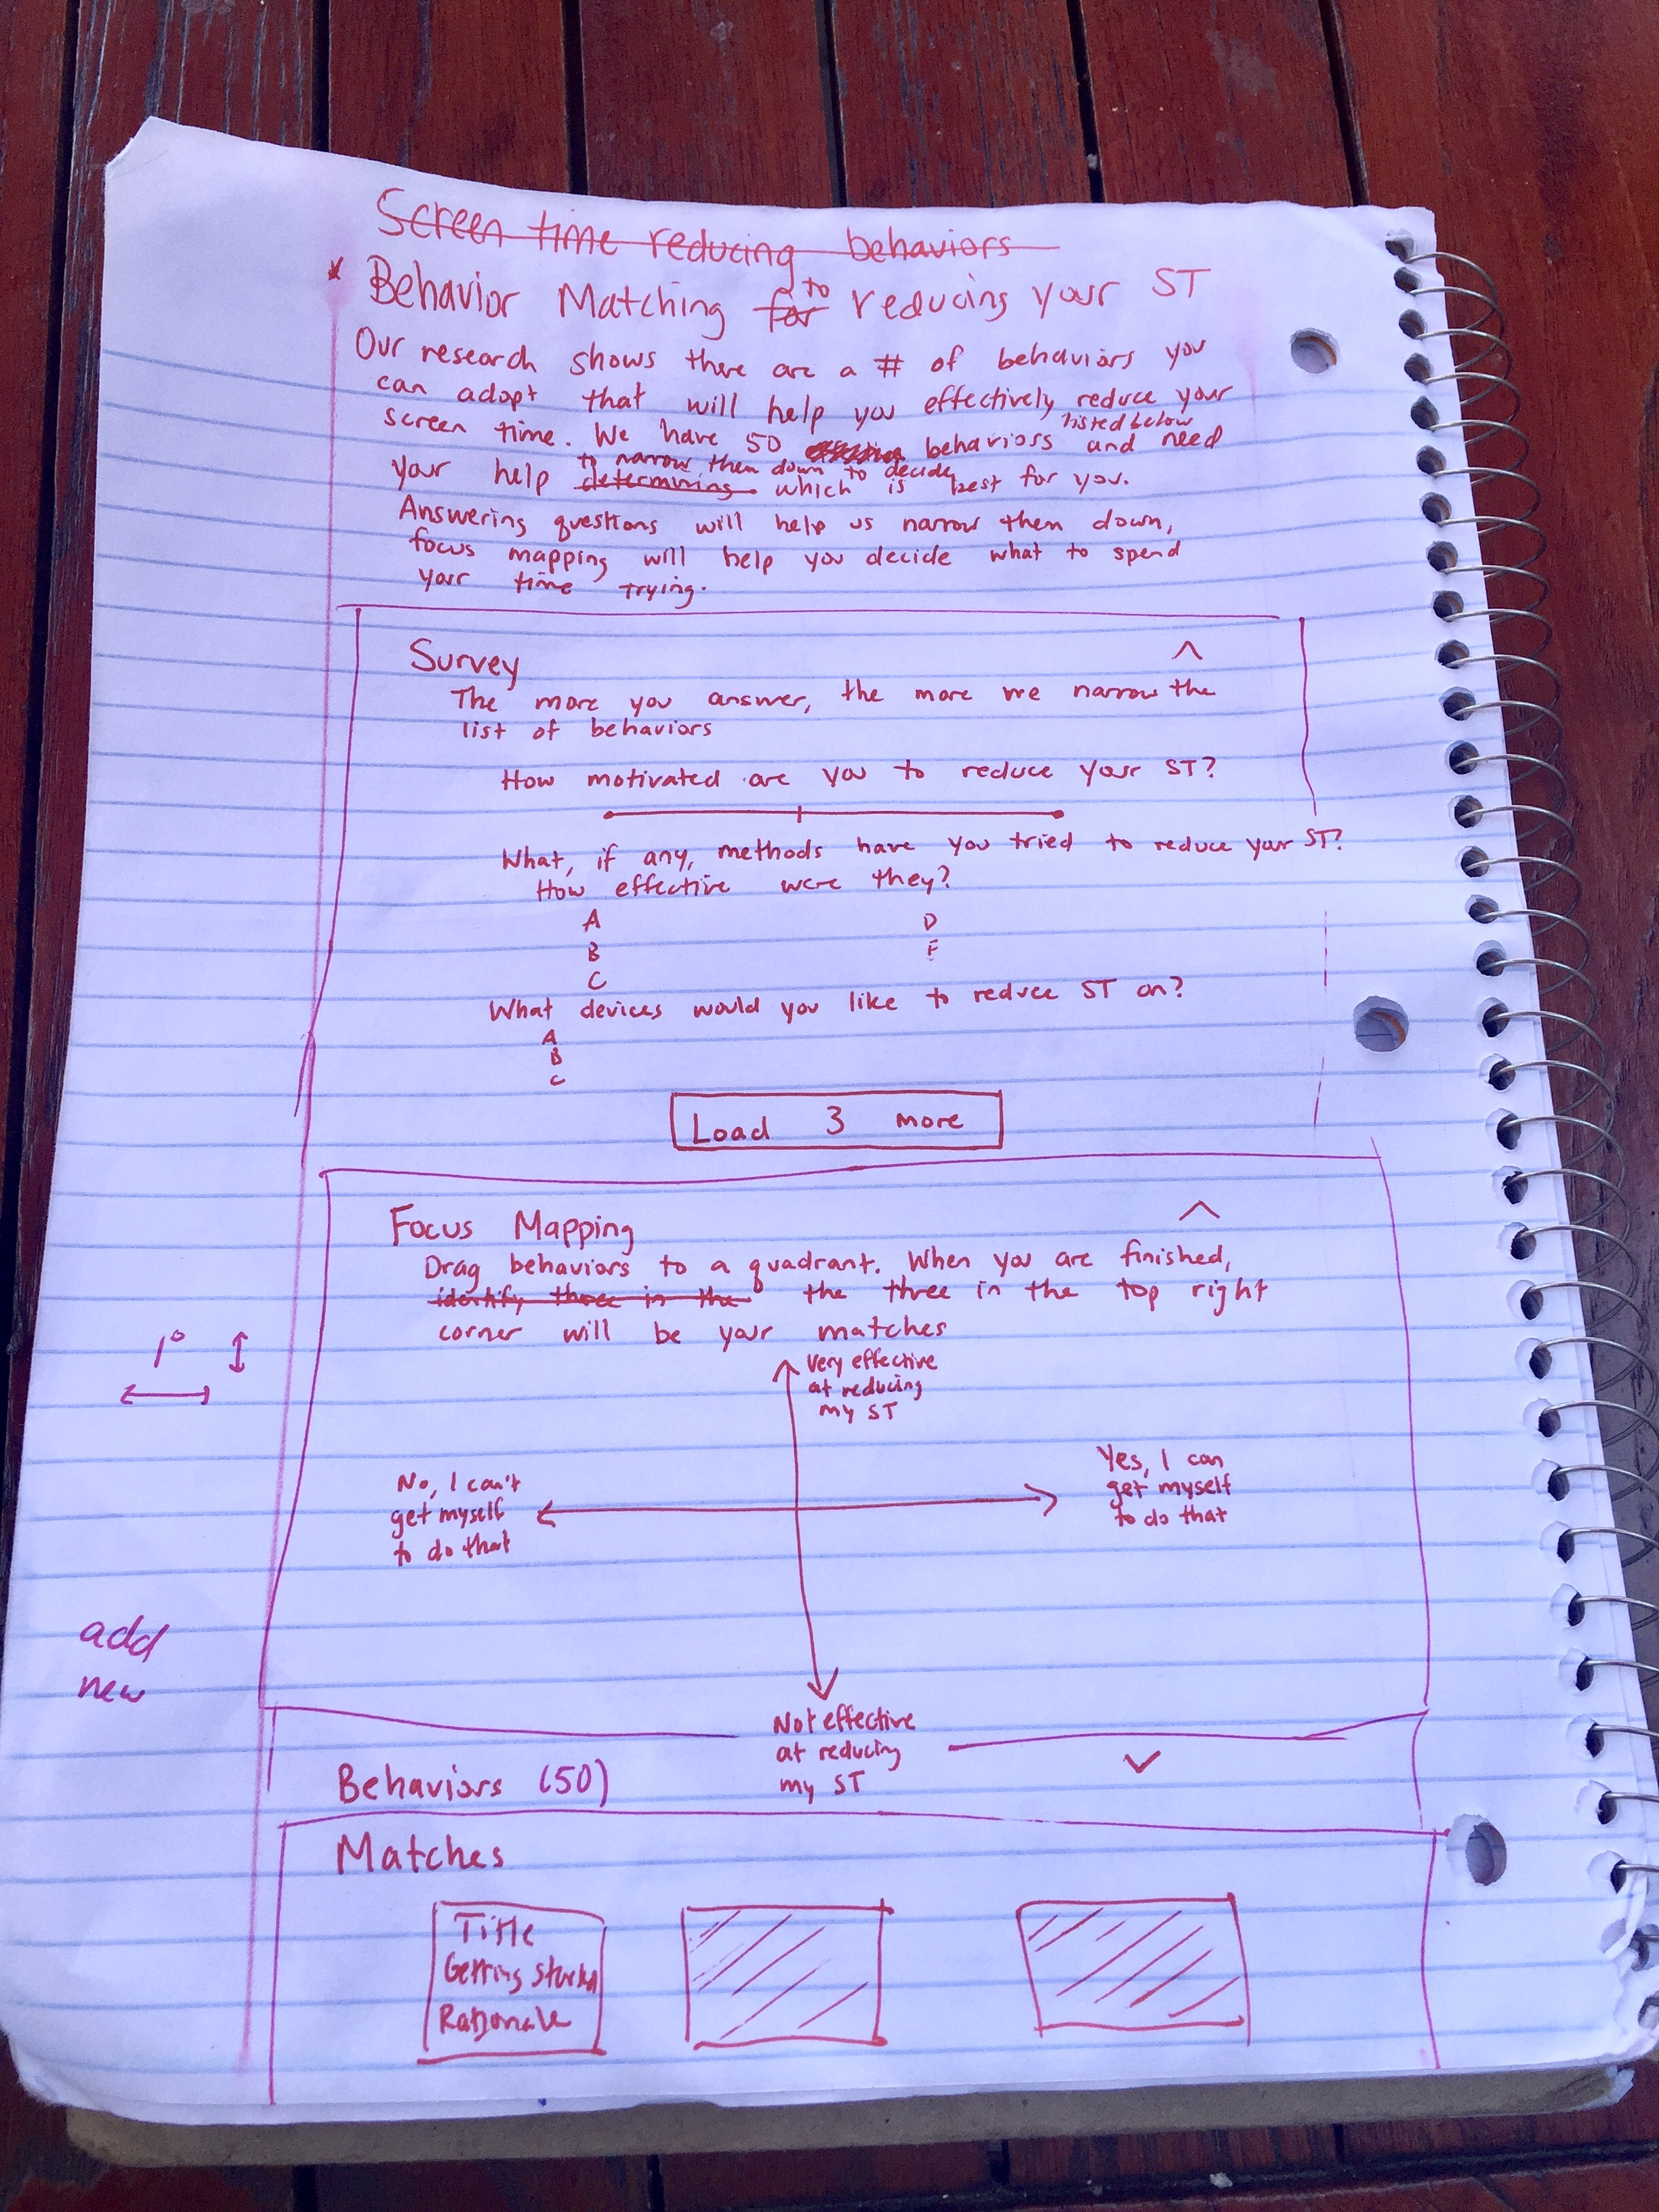 Screen time reducing behaviors
* Behavior Matching for to reducing your ST
Our research shows there are a # of behaviors you
can adopt that will help you effectively reduce your
screen time. We have 50 behaviors listed below and need
your help determining to narrow them down to decide which is best for you.
Answering questions will help us narrow them down,
focus mapping will help you decide what to spend
your time trying.
Survey ^
The more you answer, the more we narrow the
list of behaviors
How motivated are you to reduce your ST?
What, if any, methods have you tried to reduce your ST?
How effective were they?
A D
B F
C
What devices would you like to reduce ST on?
A
B
C
Load 3 more
Focus Mapping ^
Drag behaviors to a quadrant. When you are finished,
identify three in the the three in the top right
corner will be your matches
1°
Very effective
at reducing
my ST
No, I can't
get myself
to do that
Yes, I can
get myself
to do that
add
new
Not effective
at reducing
my ST
Behaviors (50)
Matches
Title
Getting started
Rationale